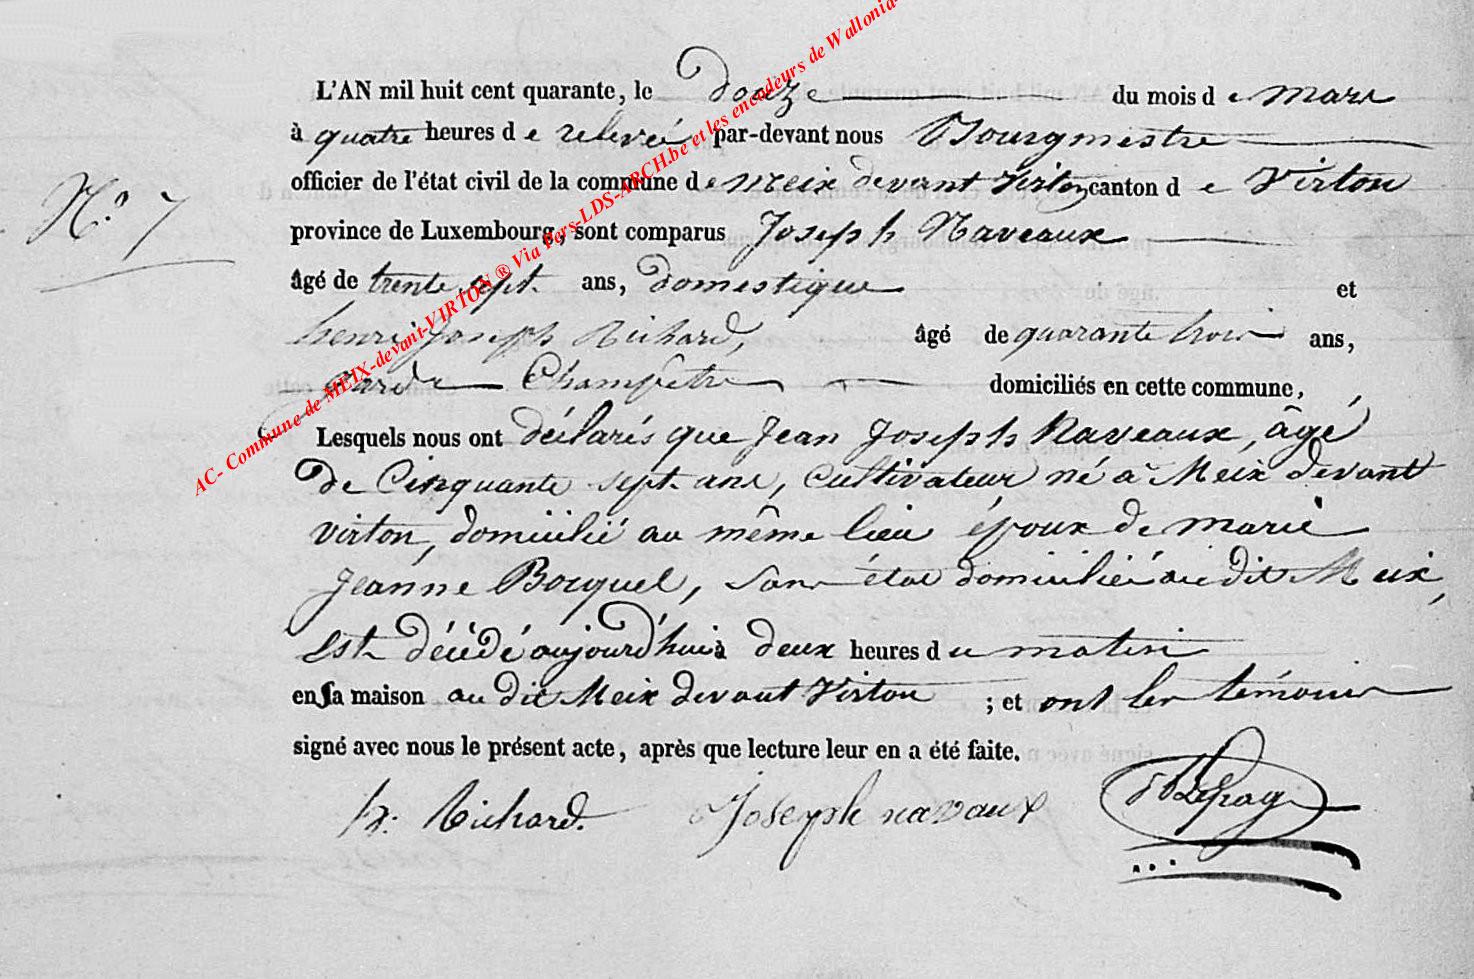 L'AN mil huit cent quarante, le douze du mois de mars
à quatre heures de relevée par-devant nous Bourgmestre
officier de l'état civil de la commune de Meix devant Virton canton de Virton
N.° 7
province de Luxembourg, sont comparus Joseph Naveaux
âgé de trente sept ans, domestique et
henri Joseph Richard, âgé de quarante trois ans,
garde Champêtre domiciliés en cette commune,
Lesquels nous ont déclarés que Jean Joseph Naveaux, âgé
de Cinquante sept ans, Cultivateur né à Meix devant
virton, domicilié au même lieu époux de marie
Jeanne Bocquel, sans état domiciliée audit Meix,
est décédé aujourd'hui à deux heures du matin
en sa maison au dit Meix devant Virton ; et ont les témoins
signé avec nous le présent acte, après que lecture leur en a été faite.
h. Richard. Joseph navaux
AC- Commune de MEIX-devant-VIRTON ® Via Pers-LDS-ARCH.be et les encodeurs de Wallonia-